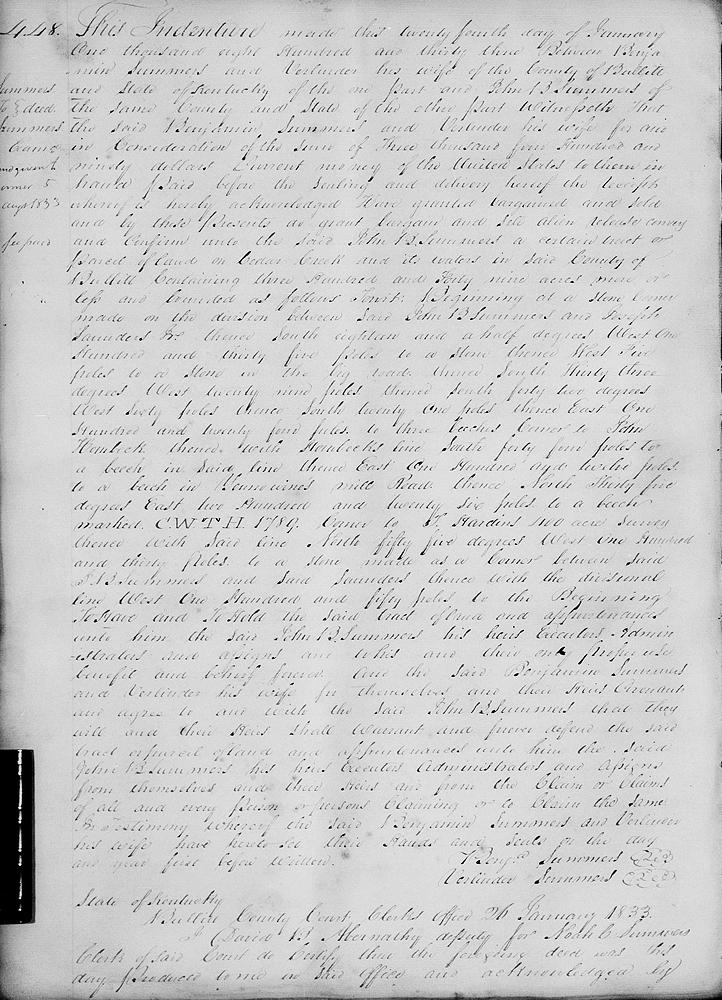 448.
Summers
To } deed
Summers
Exam.d
5
augt 1833
fee paid
This Indenture made this twenty fourth day of January
One thousand eight Hundred and thirty three Between Benja
min Summers and Verlinder his wife of the County of Bullitt
and State of Kentucky of the one part and John B Summers of
the same County and State of the other part Witnesseth that
the said Benjamin Summers and Verlinder his wife for and
in Consideration of the Sum of Three thousand four Hundred and
ninety dollars Current money of the United States to them in
hand paid before the sealing and delivery hereof the receipt
whereof is hereby acknowledged Have granted bargained and sold
and by these presents do grant bargain and sell alien release convey
and Confirm unto the said John B. Summers a certain tract or
parcel of land on Cedar Creek and its waters in said County of
Bullitt Containing three Hundred and Forty nine acres more or
less and bounded as follows Towit: Beginning at a stone Corner
made on the division between said John B Summers and Joseph
Saunders Sr. thence South eighteen and a half degrees West One
Hundred and thirty five poles to a stone thence West Five
poles to a stone in the big road. thence South Thirty three
degrees West twenty nine poles thence South forty two degrees
West Sixty poles thence South twenty One poles thence East One
Hundred and twenty four poles to three beeches Corner to John
Hornbeck thence with Hornbecks line South forty four poles to
a beech in said line thence East One Hundred and twelve poles
to a beech in mill Road. thence North Thirty five
degrees East two Hundred and twenty six poles to a beech
marked C.W.T.H. 1789. Corner to F. Hardins 400 acre Survey
thence with said line North fifty five degrees West One Hundred
and thirty poles to a stone made as a Corner between said
J. B. Summers and said Saunders thence with the divisional
line West One Hundred and fifty poles to the Beginning
To Have and To Hold the said tract of land and appurtenances
unto him the said John B. Summers his heirs Executors Admin
-istrators and assigns and to his and their only proper use
benefit and behoof forever And the said Benjamin Summers
and Verlinder his wife for themselves and their Heirs Covenant
and agree to and with the said John B. Summers that they
will and their Heirs shall Warrant and forever defend the said
tract or parcel of land and appurtenances unto him the said
John B Summers his heirs Executors Administrators and Assigns
from themselves and their Heirs and from the Claim or Claims
of all and every person or persons Claiming or to Claim the same
In Testimony whereof the said Benjamin Summers and Verlinder
his wife have hereto set their Hands and Seals on the day
and year first before written.
Benj.n Summers
Verlinder Summers
State of Kentucky
Bullitt County Court Clerks office 26 January 1833.
I David B. Abernathy deputy for Noah C Summers
Clerk of said Court do Certify that the foregoing deed was this
day produced to me in said office and acknowledged by